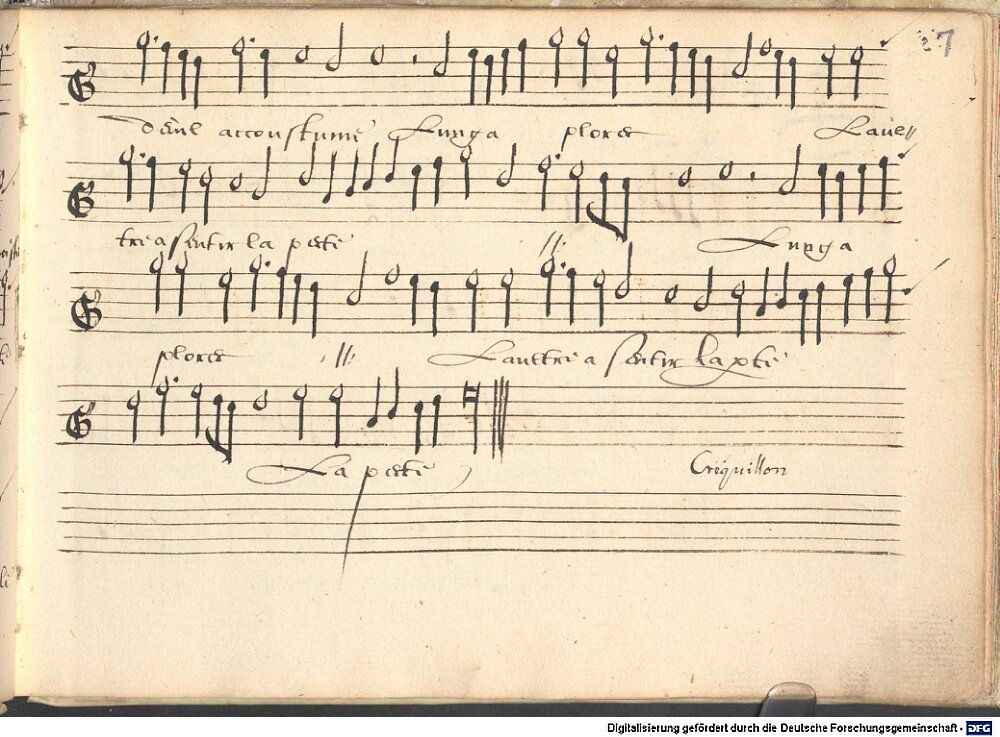 7
deul accoustumé Lung a plorer Laul//
tre a sentir la perte // Lung a
plorer // Laultre a sentir la perte
La perte
Crequillon
Digitalisierung gefördert durch die Deutsche Forschungsgemeinschaft - DFG